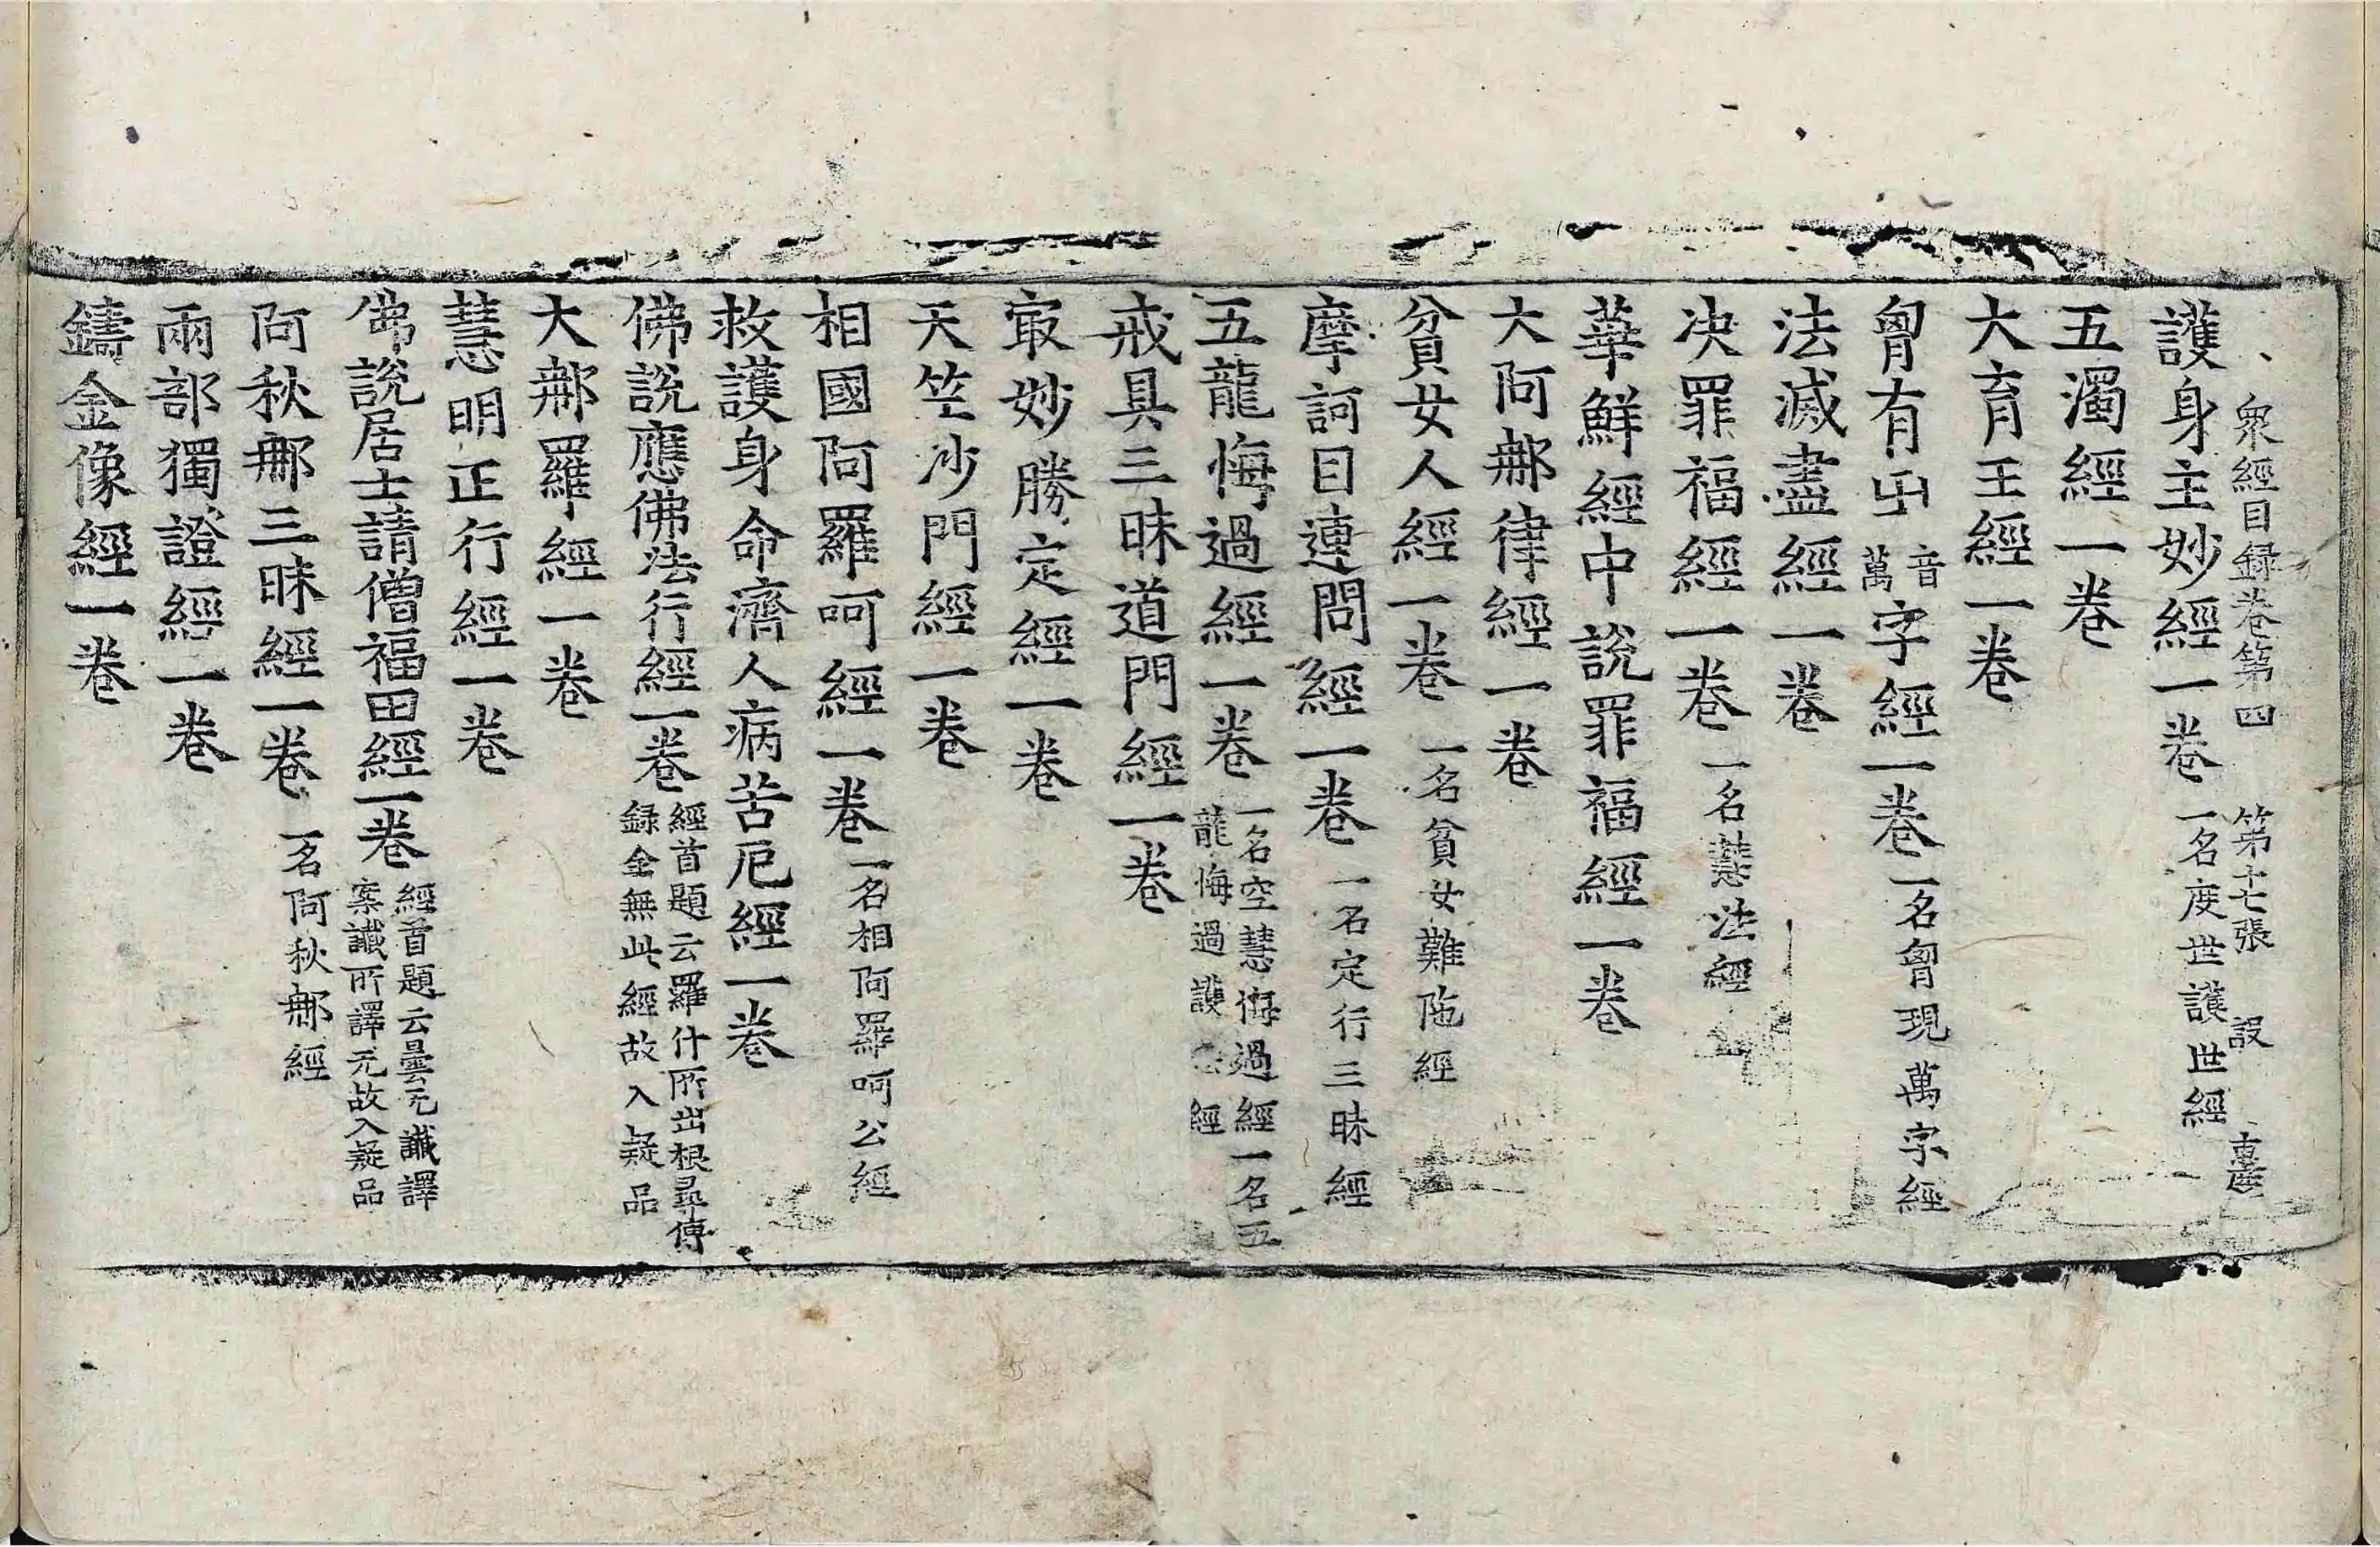 衆經目録卷第四　第十七張　設
護身主妙經一卷一名度世護世經
五濁經一卷
大育王經一卷
胷有卍音萬字經一卷一名胷現萬字經
法滅盡經一卷
决罪福經一卷一名慧法經
華鮮經中說罪福經一卷
大阿𨚗律經一卷
貧女人經一卷一名貧女難陁經
摩訶目連問經一卷一名定行三昧經
五龍悔過經一卷一名空慧悔過經一名五龍悔過護經
戒具三昧道門經一卷
㝡妙勝定經一卷
天竺沙門經一卷
相國阿羅呵經一卷一名相阿羅呵公經
救護身命濟人病苦厄經一卷
佛說應佛法行經一卷經首題云羅什所出根尋傳録全無此經故入疑品
大𨚗羅經一卷
慧明正行經一卷
佛說居士請僧福田經一卷經首題云曇无讖譯案讖所譯无故入疑品
阿秋𨚗三昧經一卷一名阿秋𨚗經
兩部獨證經一卷
鑄金像經一卷